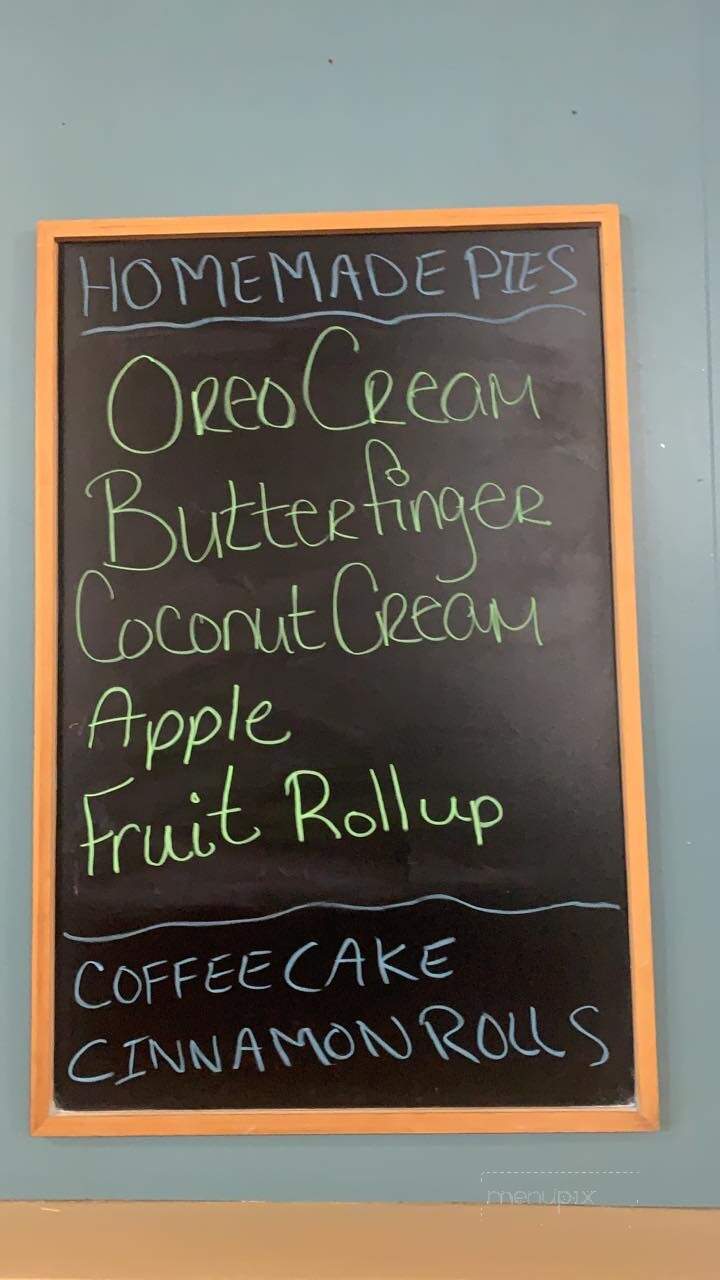 HOMEMADE PIES
Oreo Cream
Butterfinger
Coconut Cream
Apple
Fruit Rollup
COFFEE CAKE
CINNAMON ROLLS
menupix